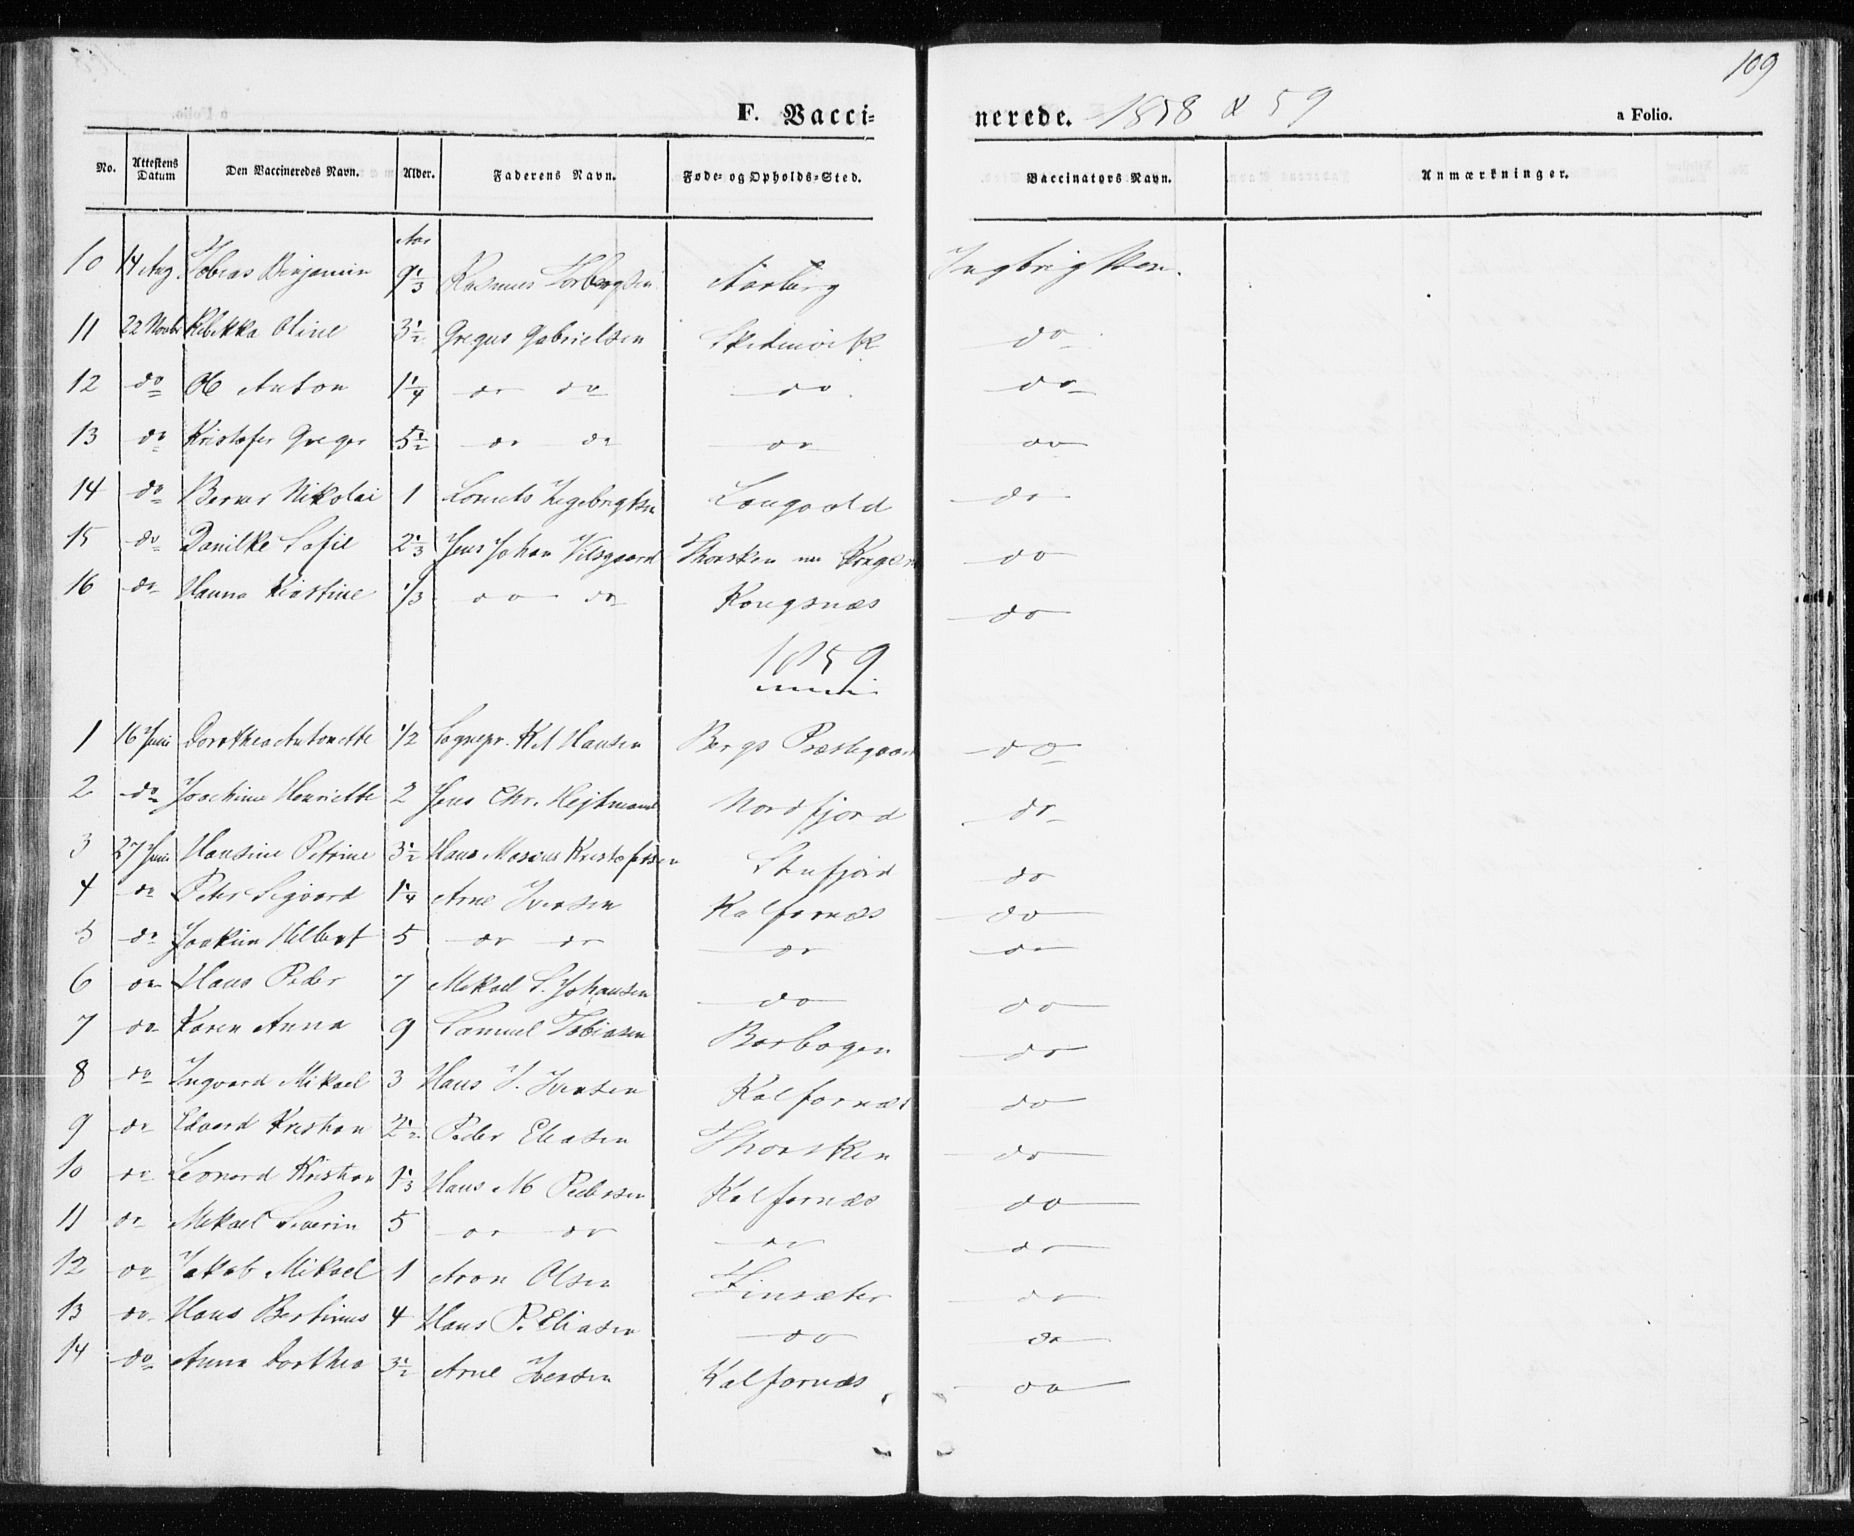 109
F. Vaccinerede. 1858 & 59
a Folio.
No. | Attestens Datum | Den Vaccineredes Navn. | Alder. | Faderens Navn. | Føde- og Opholds-Sted. | Vaccinators Navn. | Anmærkninger.
10 | 14 Aug | Tobias Benjamin | Aar 9 1/3 | Rasmus Torbergsen | Aarberg | Ingbrigtsen.
11 | 22 Novbr | Rebekka Oline | 3 1/2 | Gregus Gabrielsen | | do
12 | do | Ole Anton | 1 1/4 | do do | do | do
13 | do | Kristofer Greger | 5 1/2 | do do | do | do
14 | do | Berner Nikolai | 1 | Lornts Ingebrigtsen | | do
15 | do | Danilke Sofie | 2 1/3 | Jens Johan Vilsgaard | Thorsken nu | do
16 | do | Hanna Kirstine | 1/3 | do do | Koregsnæs | do
1859
1 | 16 Juni | Dorothea Antonette | 1/2 | Sognepr. Hansen | Bergs Præstegaard | do
2 | do | Joachime Henriette | 2 | Jens Chr. Hejtmann | Nordfjord | do
3 | 27 Juni | Hansine Petrine | 3 1/2 | Hans Marius Kristofersen | | do
4 | do | Peter Sigvard | 1 1/4 | Arne Iversen | Kalfarnæs | do
5 | do | Joakim Hilbert | 5 | do do | do | do
6 | do | Hans Peder | 7 | Mikael S. Johansen | do | do
7 | do | Karen Anna | 9 | Samuel Tobiasen | Barbogen | do
8 | do | Ingvard Mikael | 3 | Hans J. Iversen | Kalfarnæs | do
9 | do | Edvard Kristian | 2 1/2 | Peder Eliasen | Thorsken | do
10 | do | Leonard Kristian | 1 1/3 | Hans M Pedersen | Kalfarnæs | do
11 | do | Mikael Severin | 5 | do do | do | do
12 | do | Jakob Mikael | 1 | Aron Olsen | Finsæter | do
13 | do | Hans Bertinus | 4 | Hans P. Eliasen | do | do
14 | do | Anna Dorthea | 3 1/2 | Arne Iversen | Kalfarnæs | do